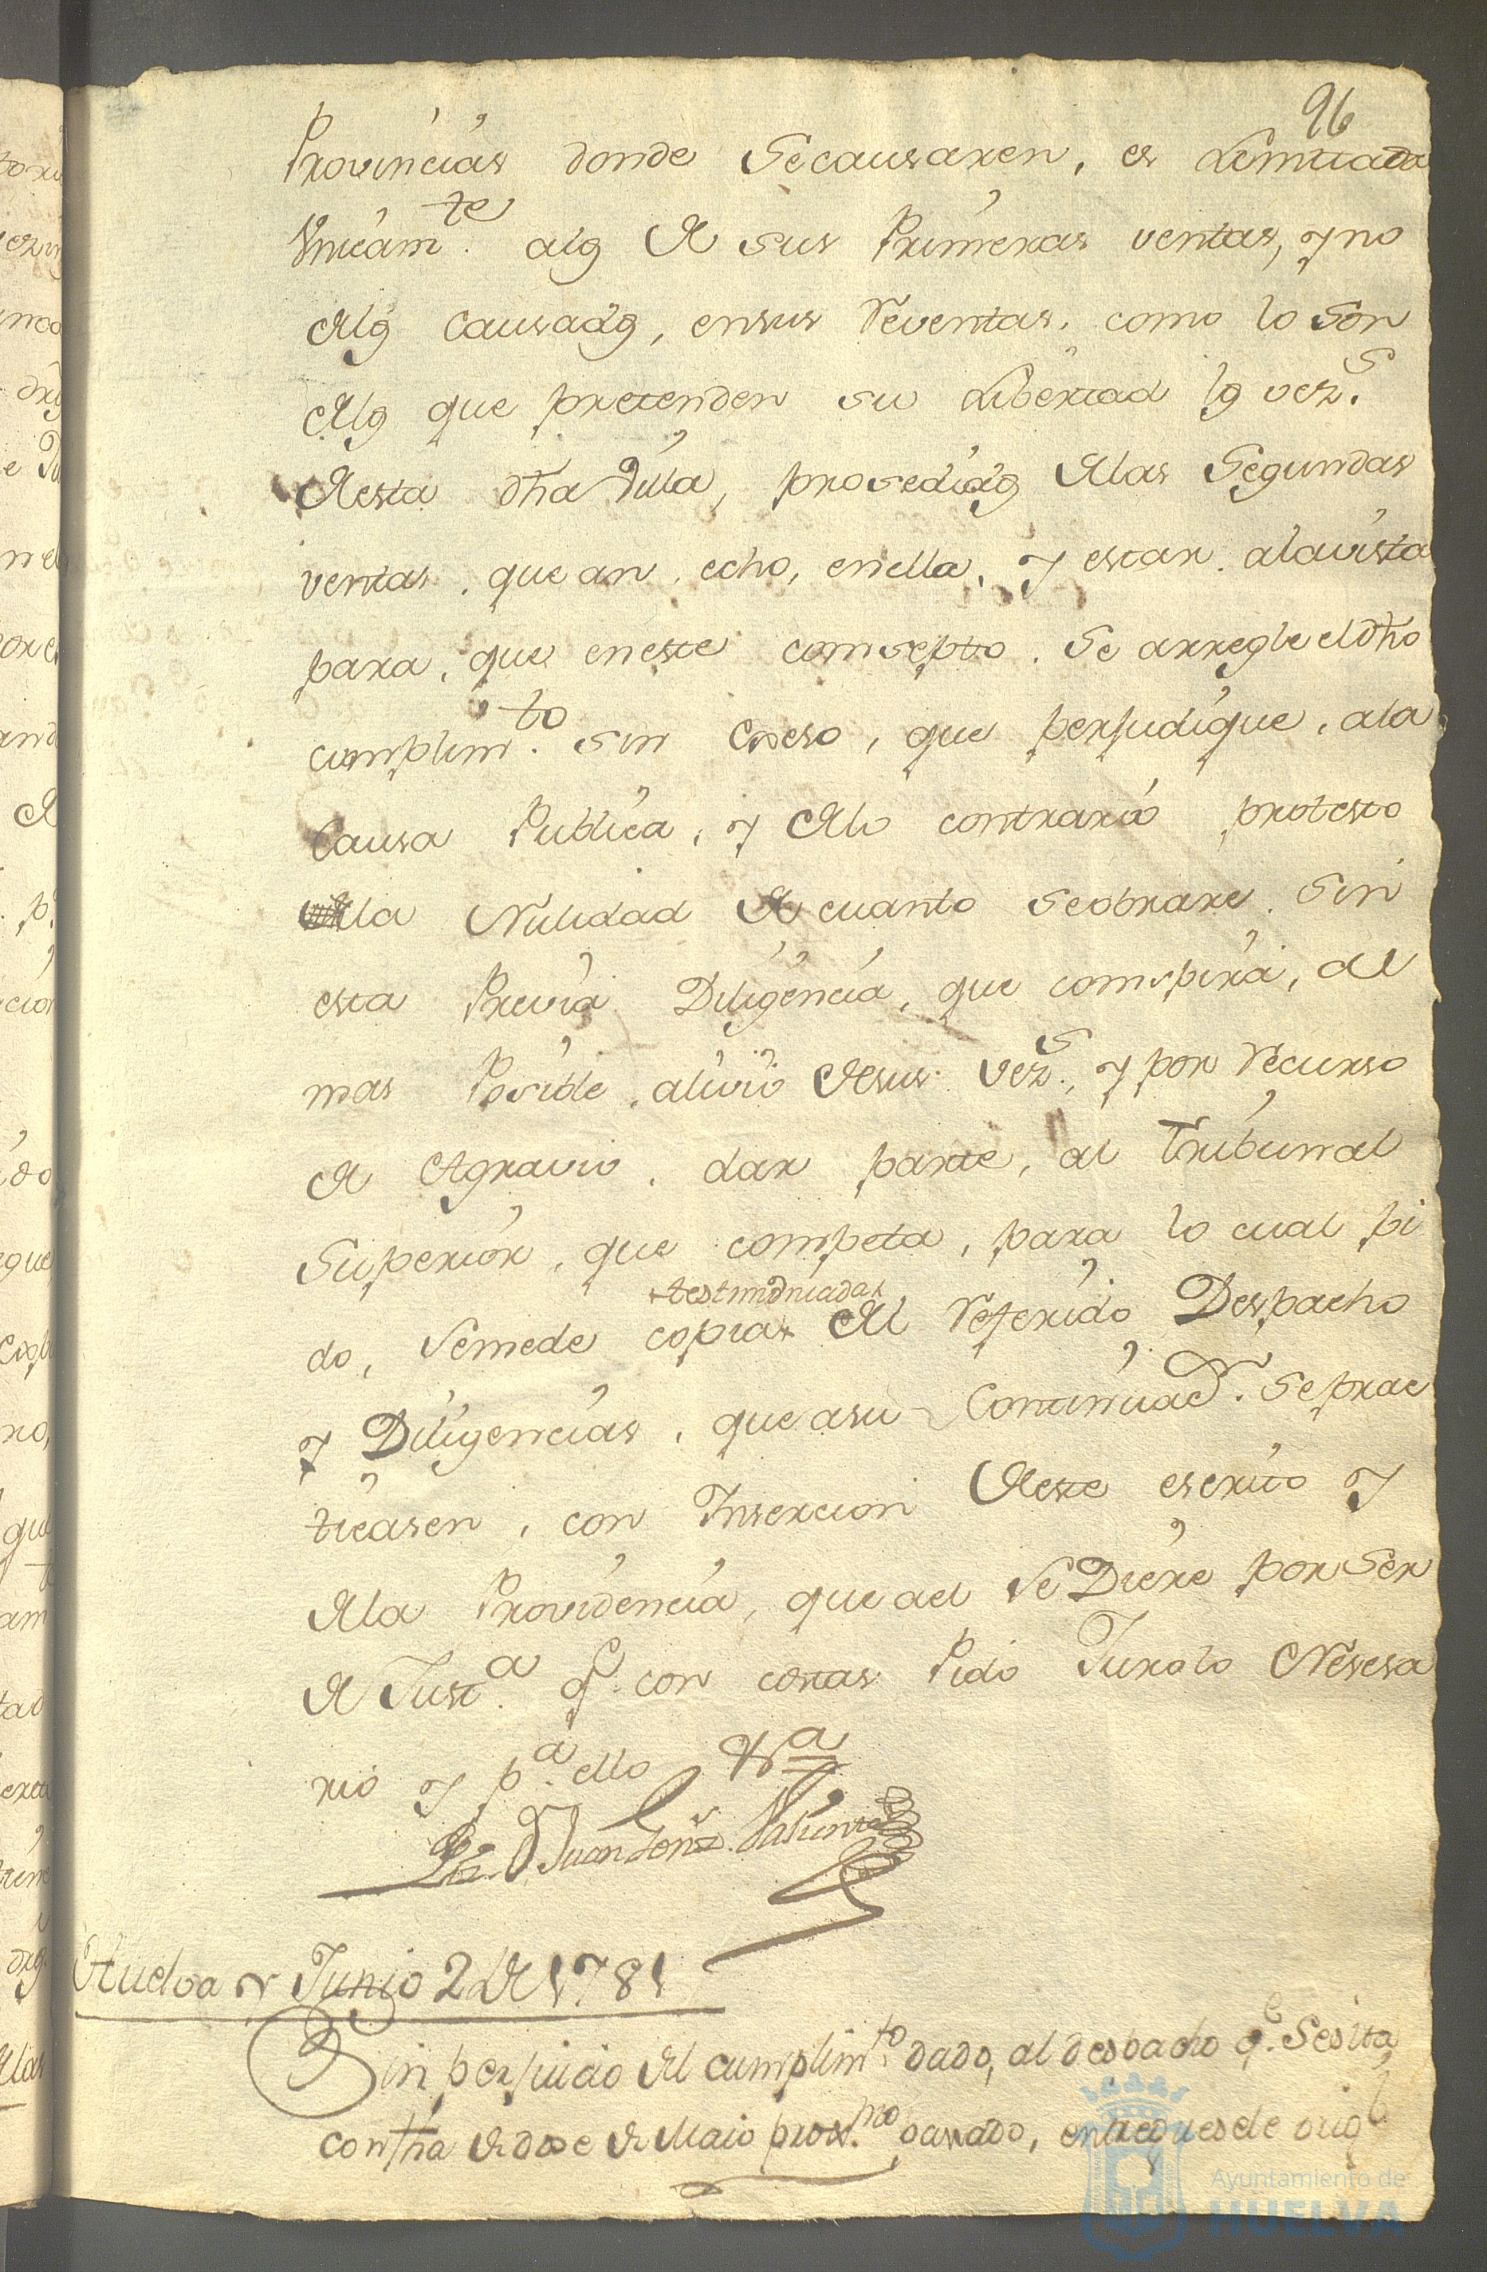 96
Provincias donde Secausaren, es Limitada
Vnicam.te alos de sus Primeras ventas, y no
delos causados, ensus Reventas, como lo son
delos que pretenden su Livertad los vez.s
desta dha Villa, prosedidos delas Segundas
ventas, que an echo, enella, y estar alavista
para, que eneste comsepto se arregle eldho
cumplim.to sin exseso, que perjudique, ala
Causa Publica, y delo contrario protesto
dela Nulidad de cuanto seobrare sin
esta Previa Diligencia, que comspira, al
mas Posible alivio desus vez.s, y por Recurso
de Agravio dar parte, al Tribunal
Superior, que competa, para lo cual pi
do, Semede copia testimoniada del Referido Despacho
y Diligencias, que asu Continuac.n Seprac
ticasen, con Insercion deste escrito y
dela Providencia, que ael SeDiere por Ser
de Just.a q.e con costas Pido Jurolo Nesesa
rio y p.a ello &.a
Juan
Huelva y Junio 2 de 1781
Sin perjuicio del cumplim.to dado, al despacho q.e Sesita
con fha de dose de Maio prox.mo pasado, entreguesele orig.l
Ayuntamiento de
HUELVA